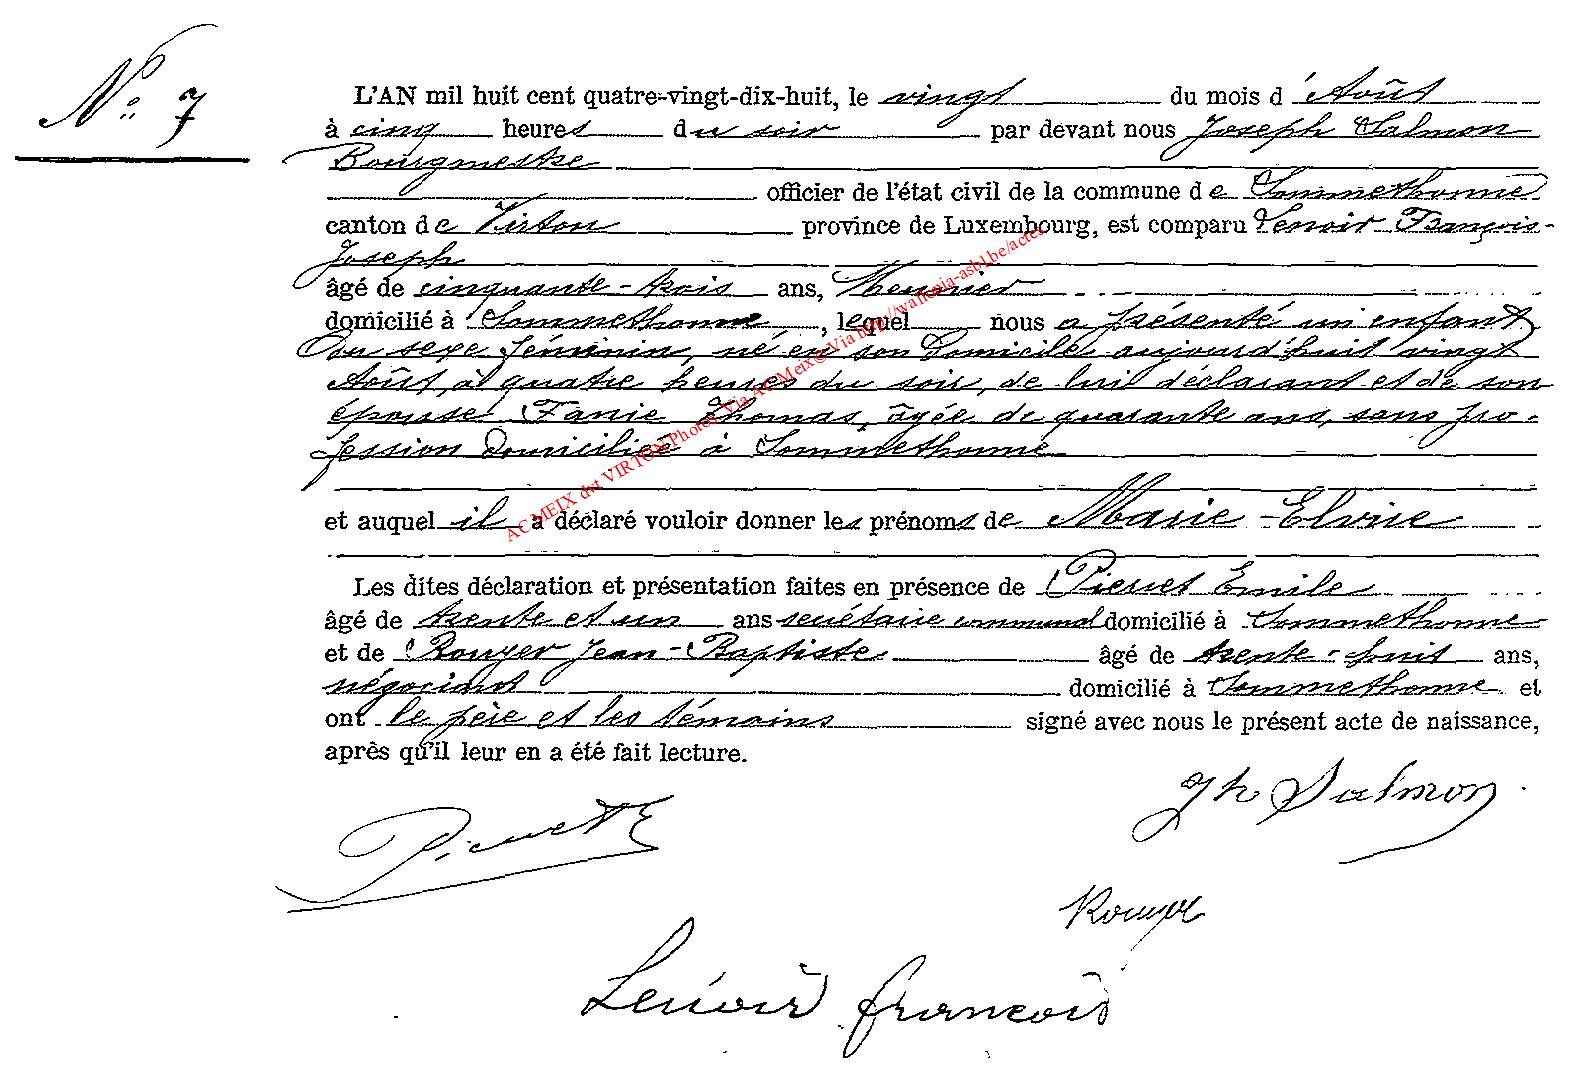 N° 7
L'AN mil huit cent quatre-vingt-dix-huit, le vingt du mois d'Août
à cinq heures du soir par devant nous Joseph Salmon
Bourgmestre
officier de l'état civil de la commune de Sommethonne
canton de Virton province de Luxembourg, est comparu Lenoir François-
Joseph
âgé de cinquante-trois ans, Menuisier
domicilié à Sommethonne, lequel nous a présenté un enfant
du sexe féminin, né en son Domicile aujourd'huit vingt
Août, à quatre heures du soir, de lui déclarant et de son
épouse Fanie Thomas, âgée de quarante ans, sans pro-
fession domiciliée à Sommethonne
et auquel il a déclaré vouloir donner les prénoms de Marie-Elvire
Les dites déclaration et présentation faites en présence de Pierret Emile
âgé de trente et un ans secrétaire communal domicilié à Sommethonne
et de Rouyer Jean-Baptiste âgé de trente-huit ans,
négociant domicilié à Sommethonne et
ont le père et les témoins signé avec nous le présent acte de naissance,
après qu'il leur en a été fait lecture.
Jh Salmon
Pierret
Rouyer
Lenoir françois
AC MEIX dvt VIRTON Photos Via AC Meix© Via http://wallonia-asbl.be/actes